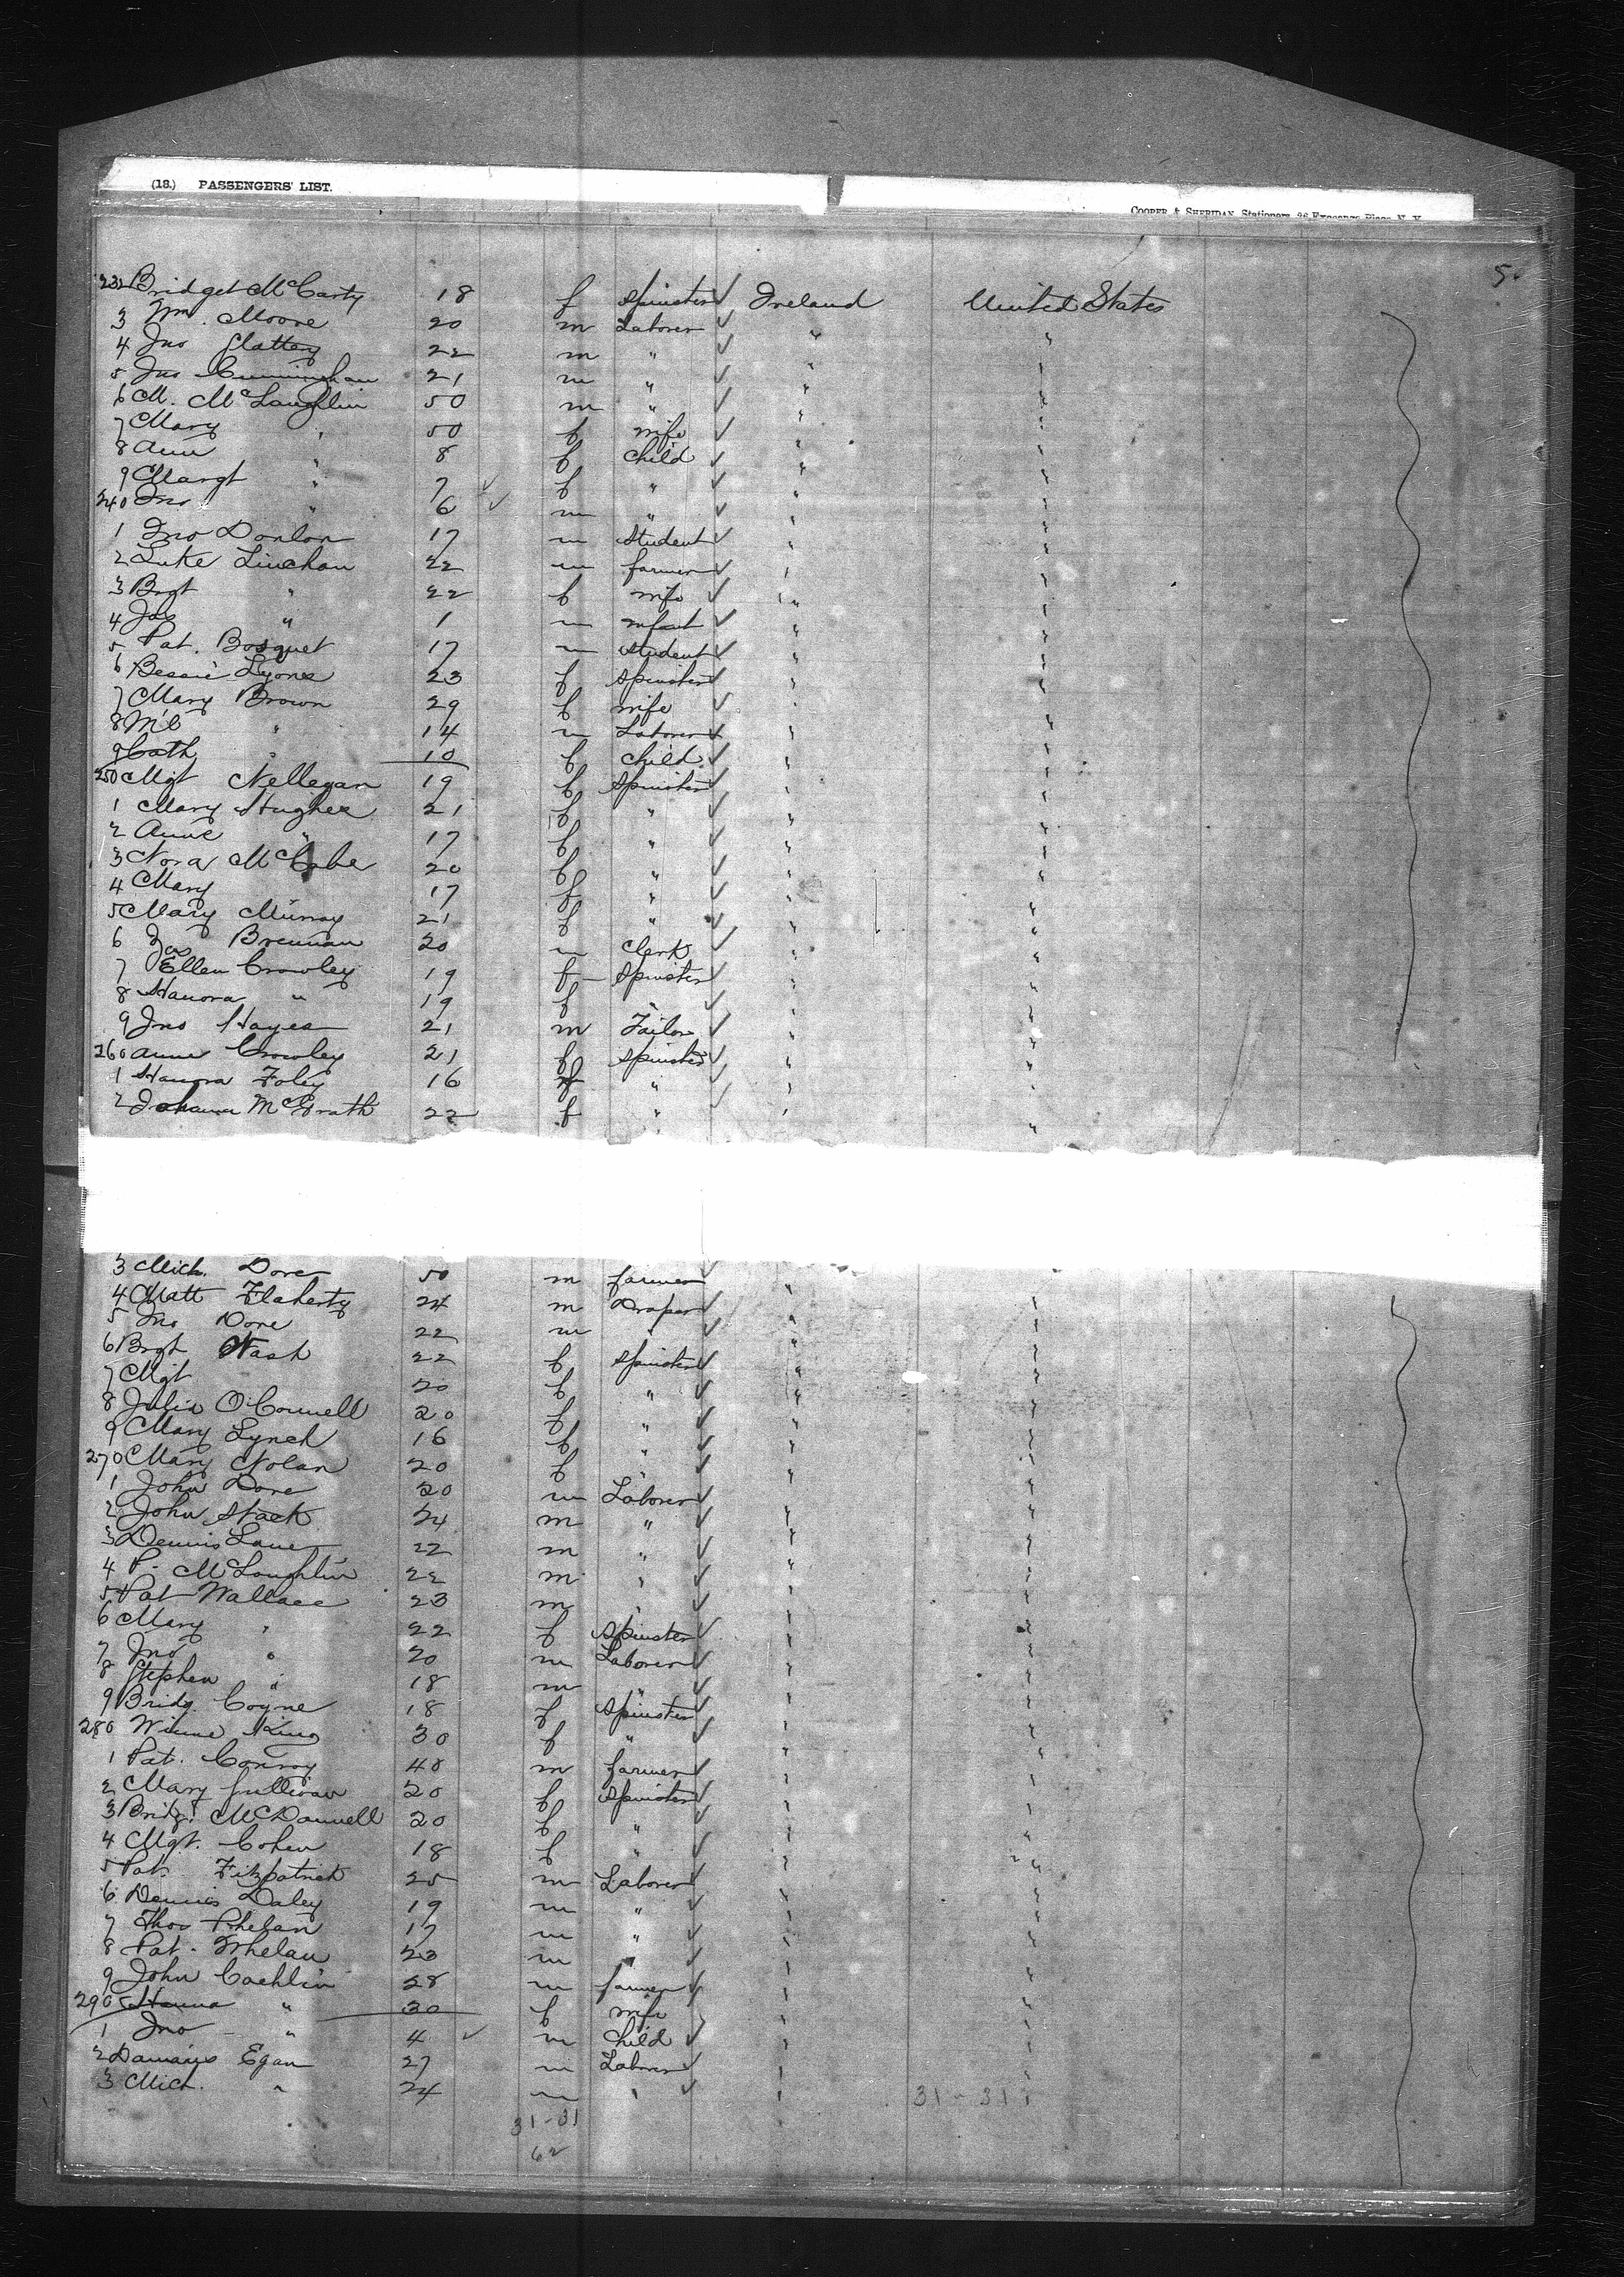 (18.) PASSENGERS' LIST.
COOPER & SHERIDAN, Stationers, 26 Exchange Place, N. Y.
5.
232 Bridget McCarty 18 f Spinster ✓ Ireland United States
3 Wm. Moore 20 m Laborer ✓ " "
4 Jno Slattery 22 m " ✓ " "
5 Jno Cunningham 21 m " ✓ " "
6 M. McLaughlin 50 m " ✓ " "
7 Mary " 50 f wife ✓ " "
8 Ann " 8 f Child ✓ " "
9 Margt " 7 ✓ f " ✓ " "
240 Jno " 6 ✓ m " ✓ " "
1 Jno Donlon 17 m Student ✓ " "
2 Luke Linehan 22 m farmer ✓ " "
3 Brgt " 22 f wife ✓ " "
4 Jas " 1 m infant ✓ " "
5 Pat. Bosquet 17 m Student ✓ " "
6 Bessie Lyons 23 f Spinster ✓ " "
7 Mary Brown 29 f wife ✓ " "
8 Ml " 14 m Laborer ✓ " "
9 Cath " 10 f Child ✓ " "
250 Mgt Nellegan 19 f Spinster ✓ " "
1 Mary Hughes 21 f " ✓ " "
2 Anne " 17 f " ✓ " "
3 Nora McCabe 20 f " ✓ " "
4 Mary 17 f " ✓ " "
5 Mary Murray 21 f " ✓ " "
6 Jas Brennan 20 m Clerk ✓ " "
7 Ellen Crowley 19 f Spinster ✓ " "
8 Hanora " 19 f " ✓ " "
9 Jno Hayes 21 m Tailor ✓ " "
260 Anne Crowley 21 f Spinster ✓ " "
1 Hanora Foley 16 f " ✓ " "
2 Johanna McGrath 22 f " ✓ " "
3 Mich. Dore 50 m farmer
4 Matt Flaherty 24 m Draper ✓ " "
5 Jno Dore 22 m " ✓ " "
6 Brgt Nash 22 f Spinster ✓ " "
7 Mgt 20 f " ✓ " "
8 Julia O'Connell 20 f " ✓ " "
9 Mary Lynch 16 f " ✓ " "
270 Mary Nolan 20 f " ✓ " "
1 John Dore 20 m Laborer ✓ " "
2 John Stack 24 m " ✓ " "
3 Dennis Lane 22 m " ✓ " "
4 P. McLoughlin 22 m " ✓ " "
5 Pat Wallace 23 m " ✓ " "
6 Mary " 22 f Spinster ✓ " "
7 Jno " 20 m Laborer ✓ " "
8 Stephen " 18 m " ✓ " "
9 Bridg. Coyne 18 f Spinster ✓ " "
280 Winne King 30 f " ✓ " "
1 Pat. Conroy 40 m farmer ✓ " "
2 Mary Sullivan 20 f Spinster ✓ " "
3 Bridg. McDonnell 20 f " ✓ " "
4 Mgt. Cohen 18 f " ✓ " "
5 Pat. Fitzpatrick 25 m Laborer ✓ " "
6 Dennis Daley 19 m " ✓ " "
7 Thos Phelan 17 m " ✓ " "
8 Pat. Whelan 23 m " ✓ " "
9 John Cachlin 28 m farmer ✓ " "
290 Hanna " 30 f wife ✓ " "
1 Jno " 4 ✓ m Child ✓ " "
2 Egan 27 m Laborer ✓ " "
3 Mich. " 24 m " ✓ " "
31-31
31-31
62